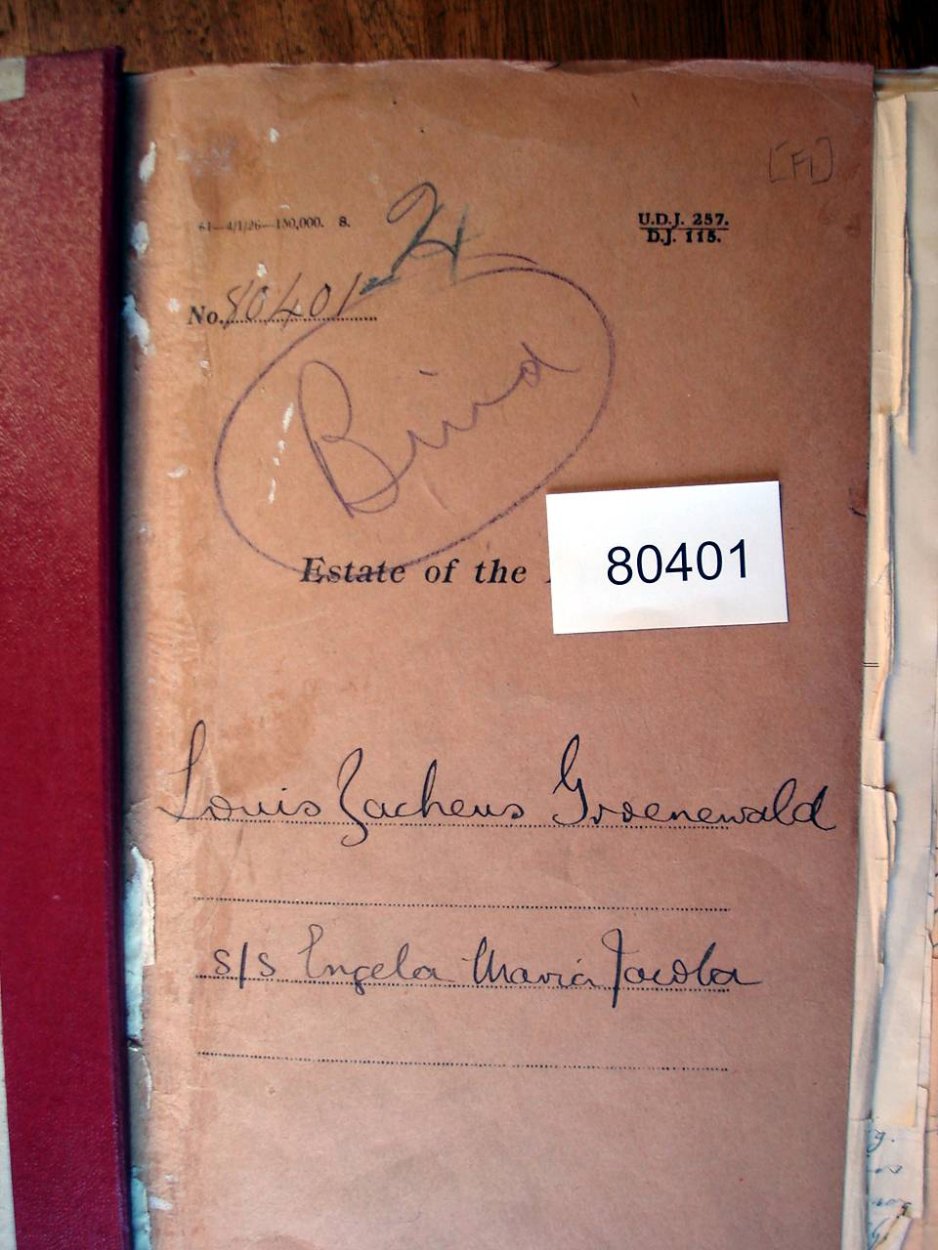 [F1]
61—4/1/26—150,000. 8.
U.D.J. 257.
D.J. 115.
No. 80401
Bind
80401
Estate of the
Louis Zacheus Groenewald
s/s Engela Maria Jacoba